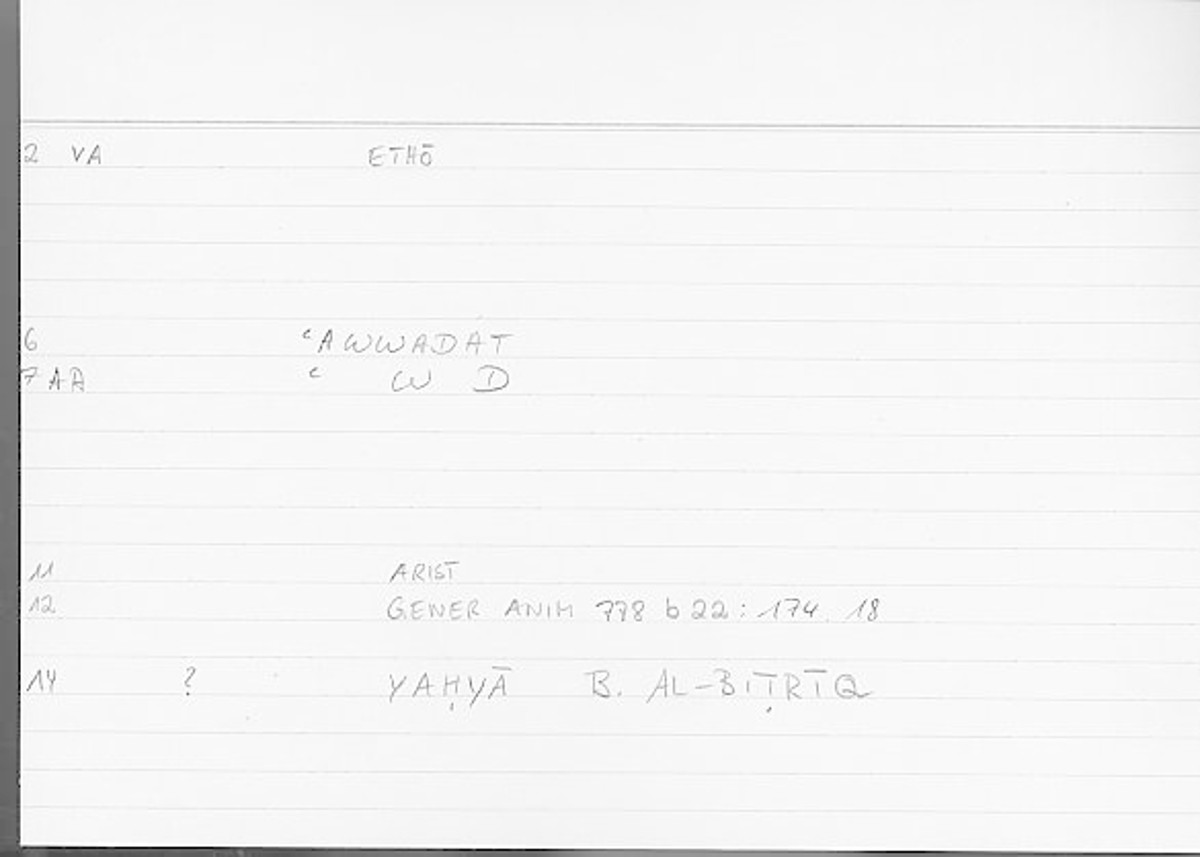 2 VA ETHŌ
6 ʿAWWADAT
7 AA ʿ W D
11 ARIST
12 GENER ANIM 778 b 22 : 174. 18
14 ? YAḤYĀ B. AL-BIṬRĪQ